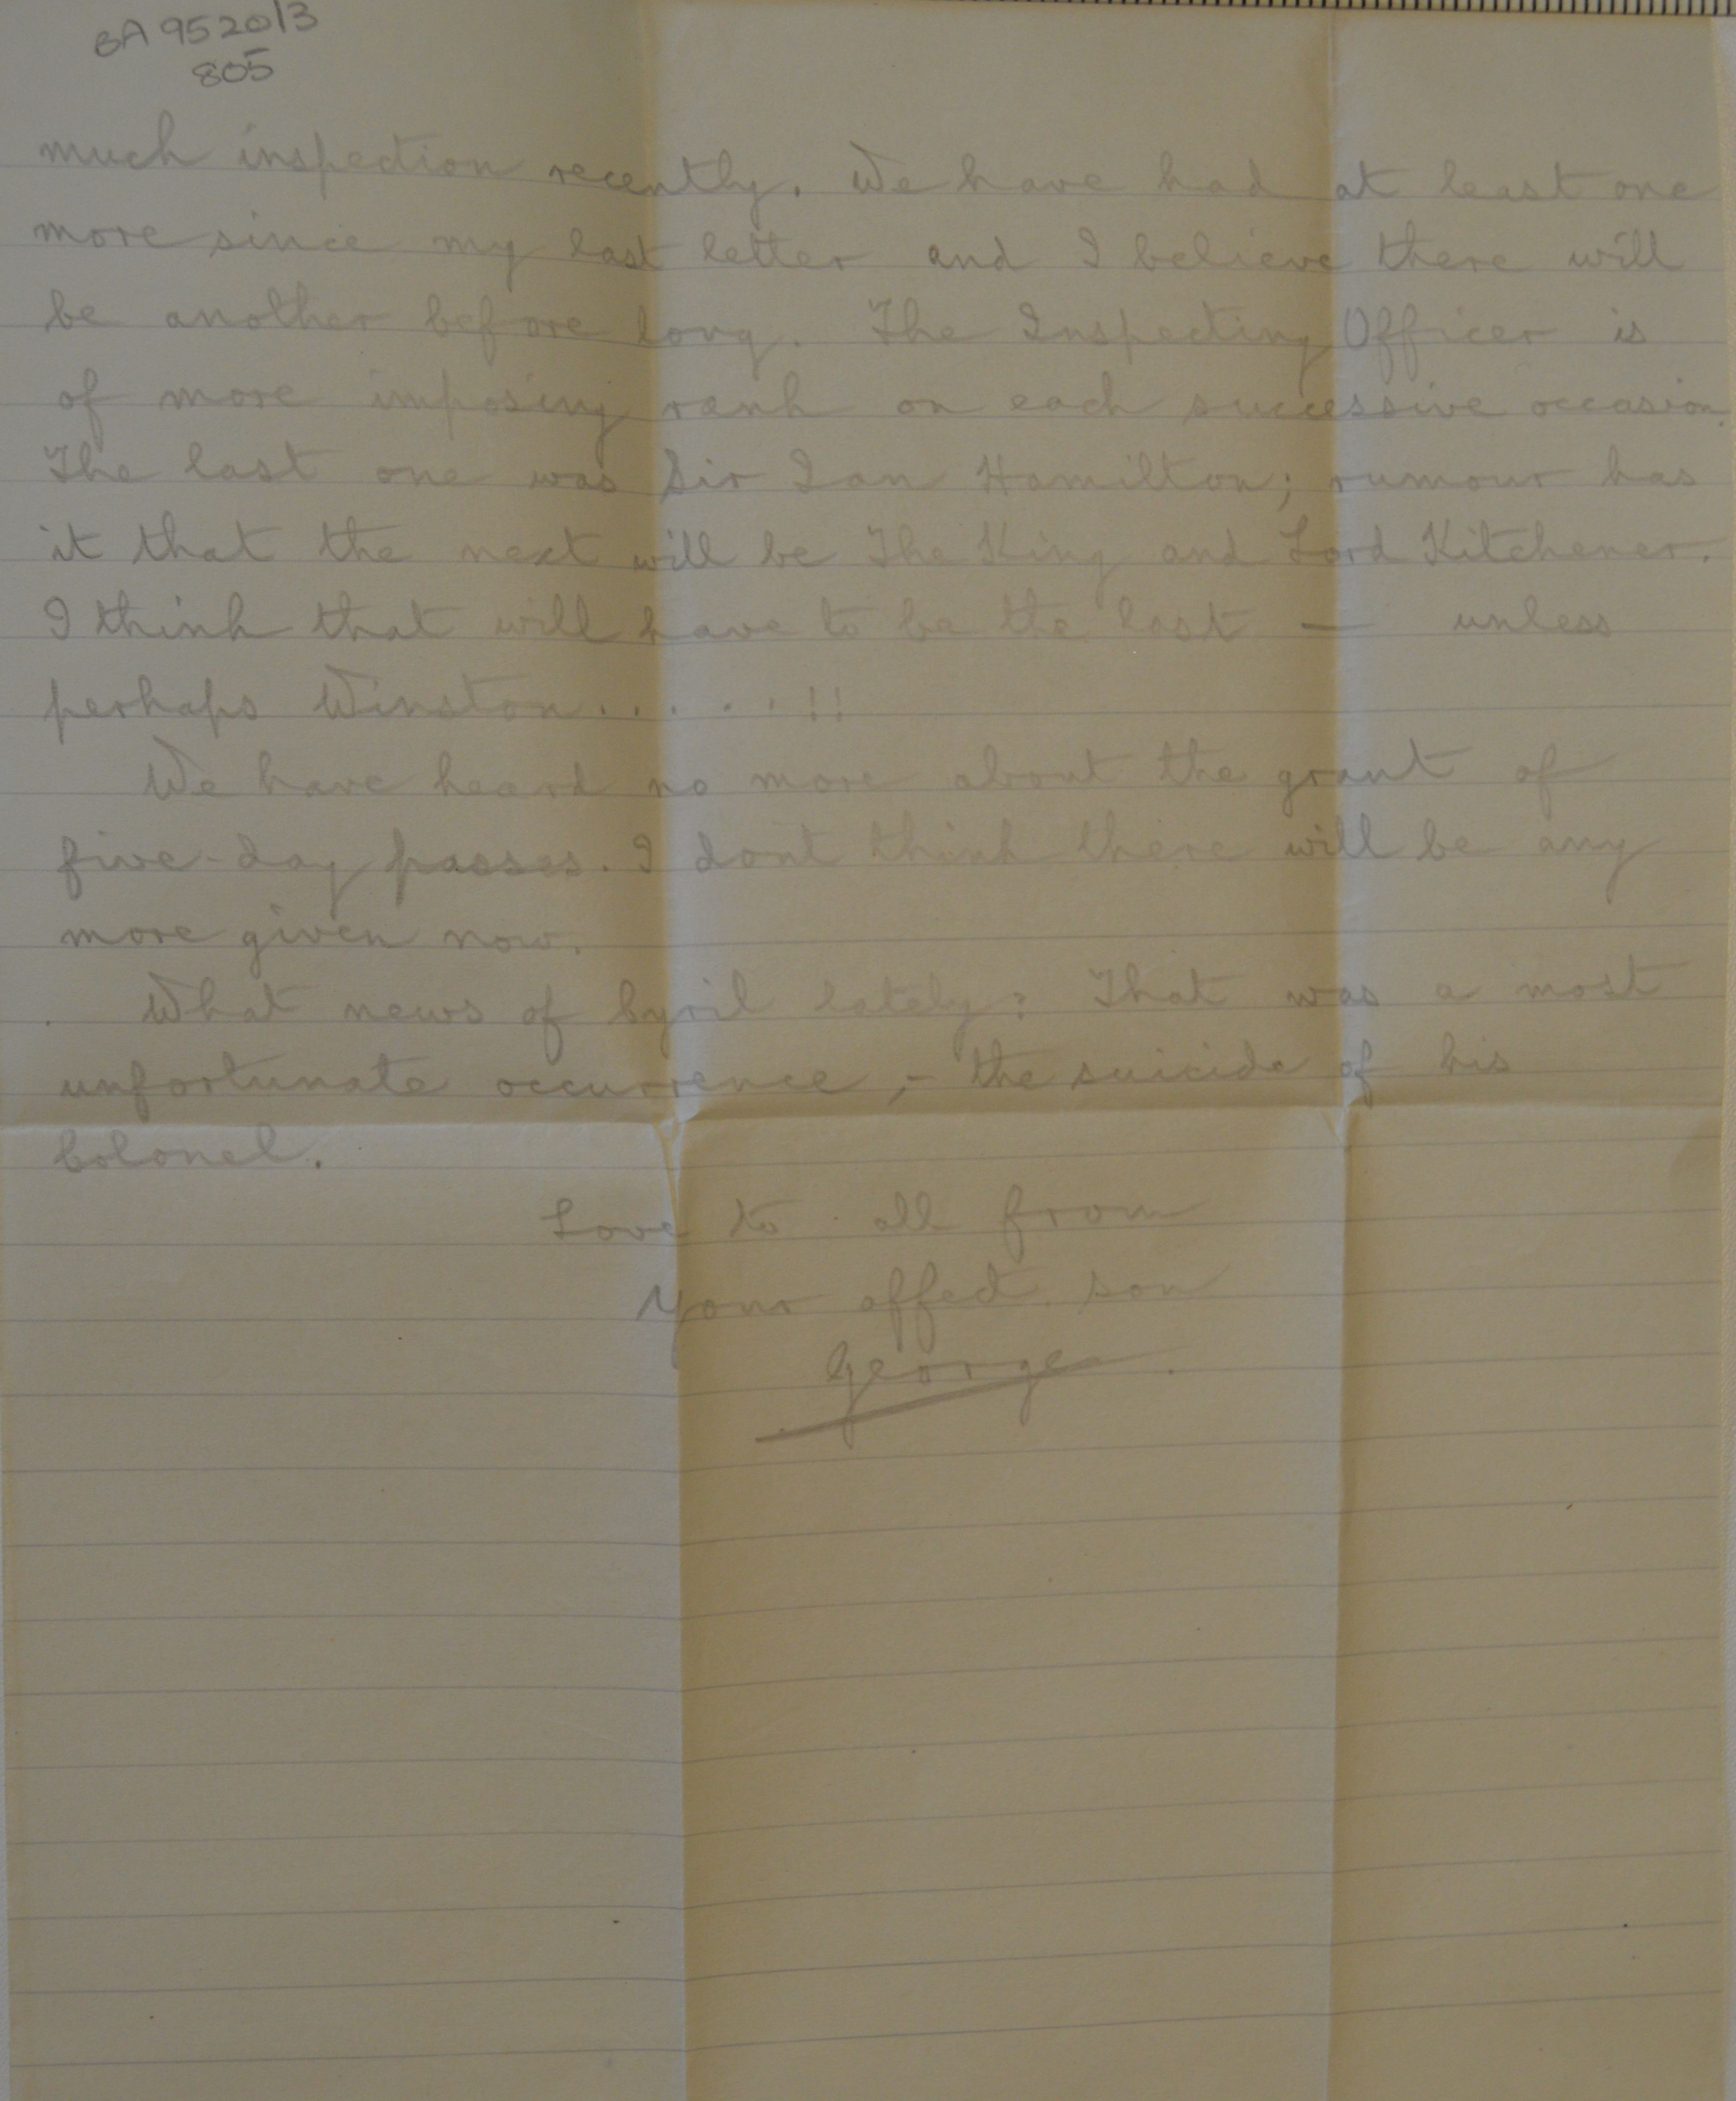 BA 9520/3
805
much inspection recently. We have had at least one
more since my last letter and I believe there will
be another before long. The Inspecting Officer is
of more imposing rank on each successive occasion.
The last one was Sir Ian Hamilton; rumour has
it that the next will be The King and Lord Kitchener.
I think that will have to be the last — unless
perhaps Winston . . . . . !!
We have heard no more about the grant of
five-day passes. I dont think there will be any
more given now.
What news of Cyril lately? That was a most
unfortunate occurrence, - the suicide of his
Colonel.
Love to all from
Your affect. son
George.